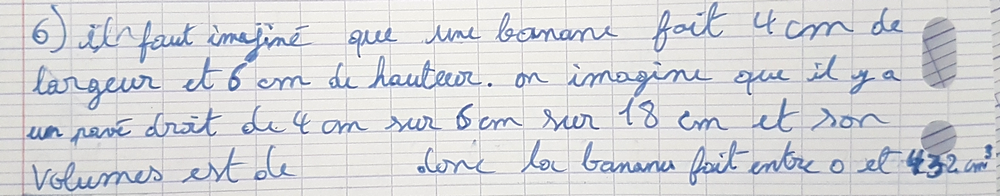 6) il faut imaginé que une banane fait 4 cm de
largeur et 6 cm de hauteur. on imagine que il y a
un pavé droit de 4 cm sur 6 cm sur 18 cm et son
volumes est de donc la banane fait entre 0 et 432 cm³.